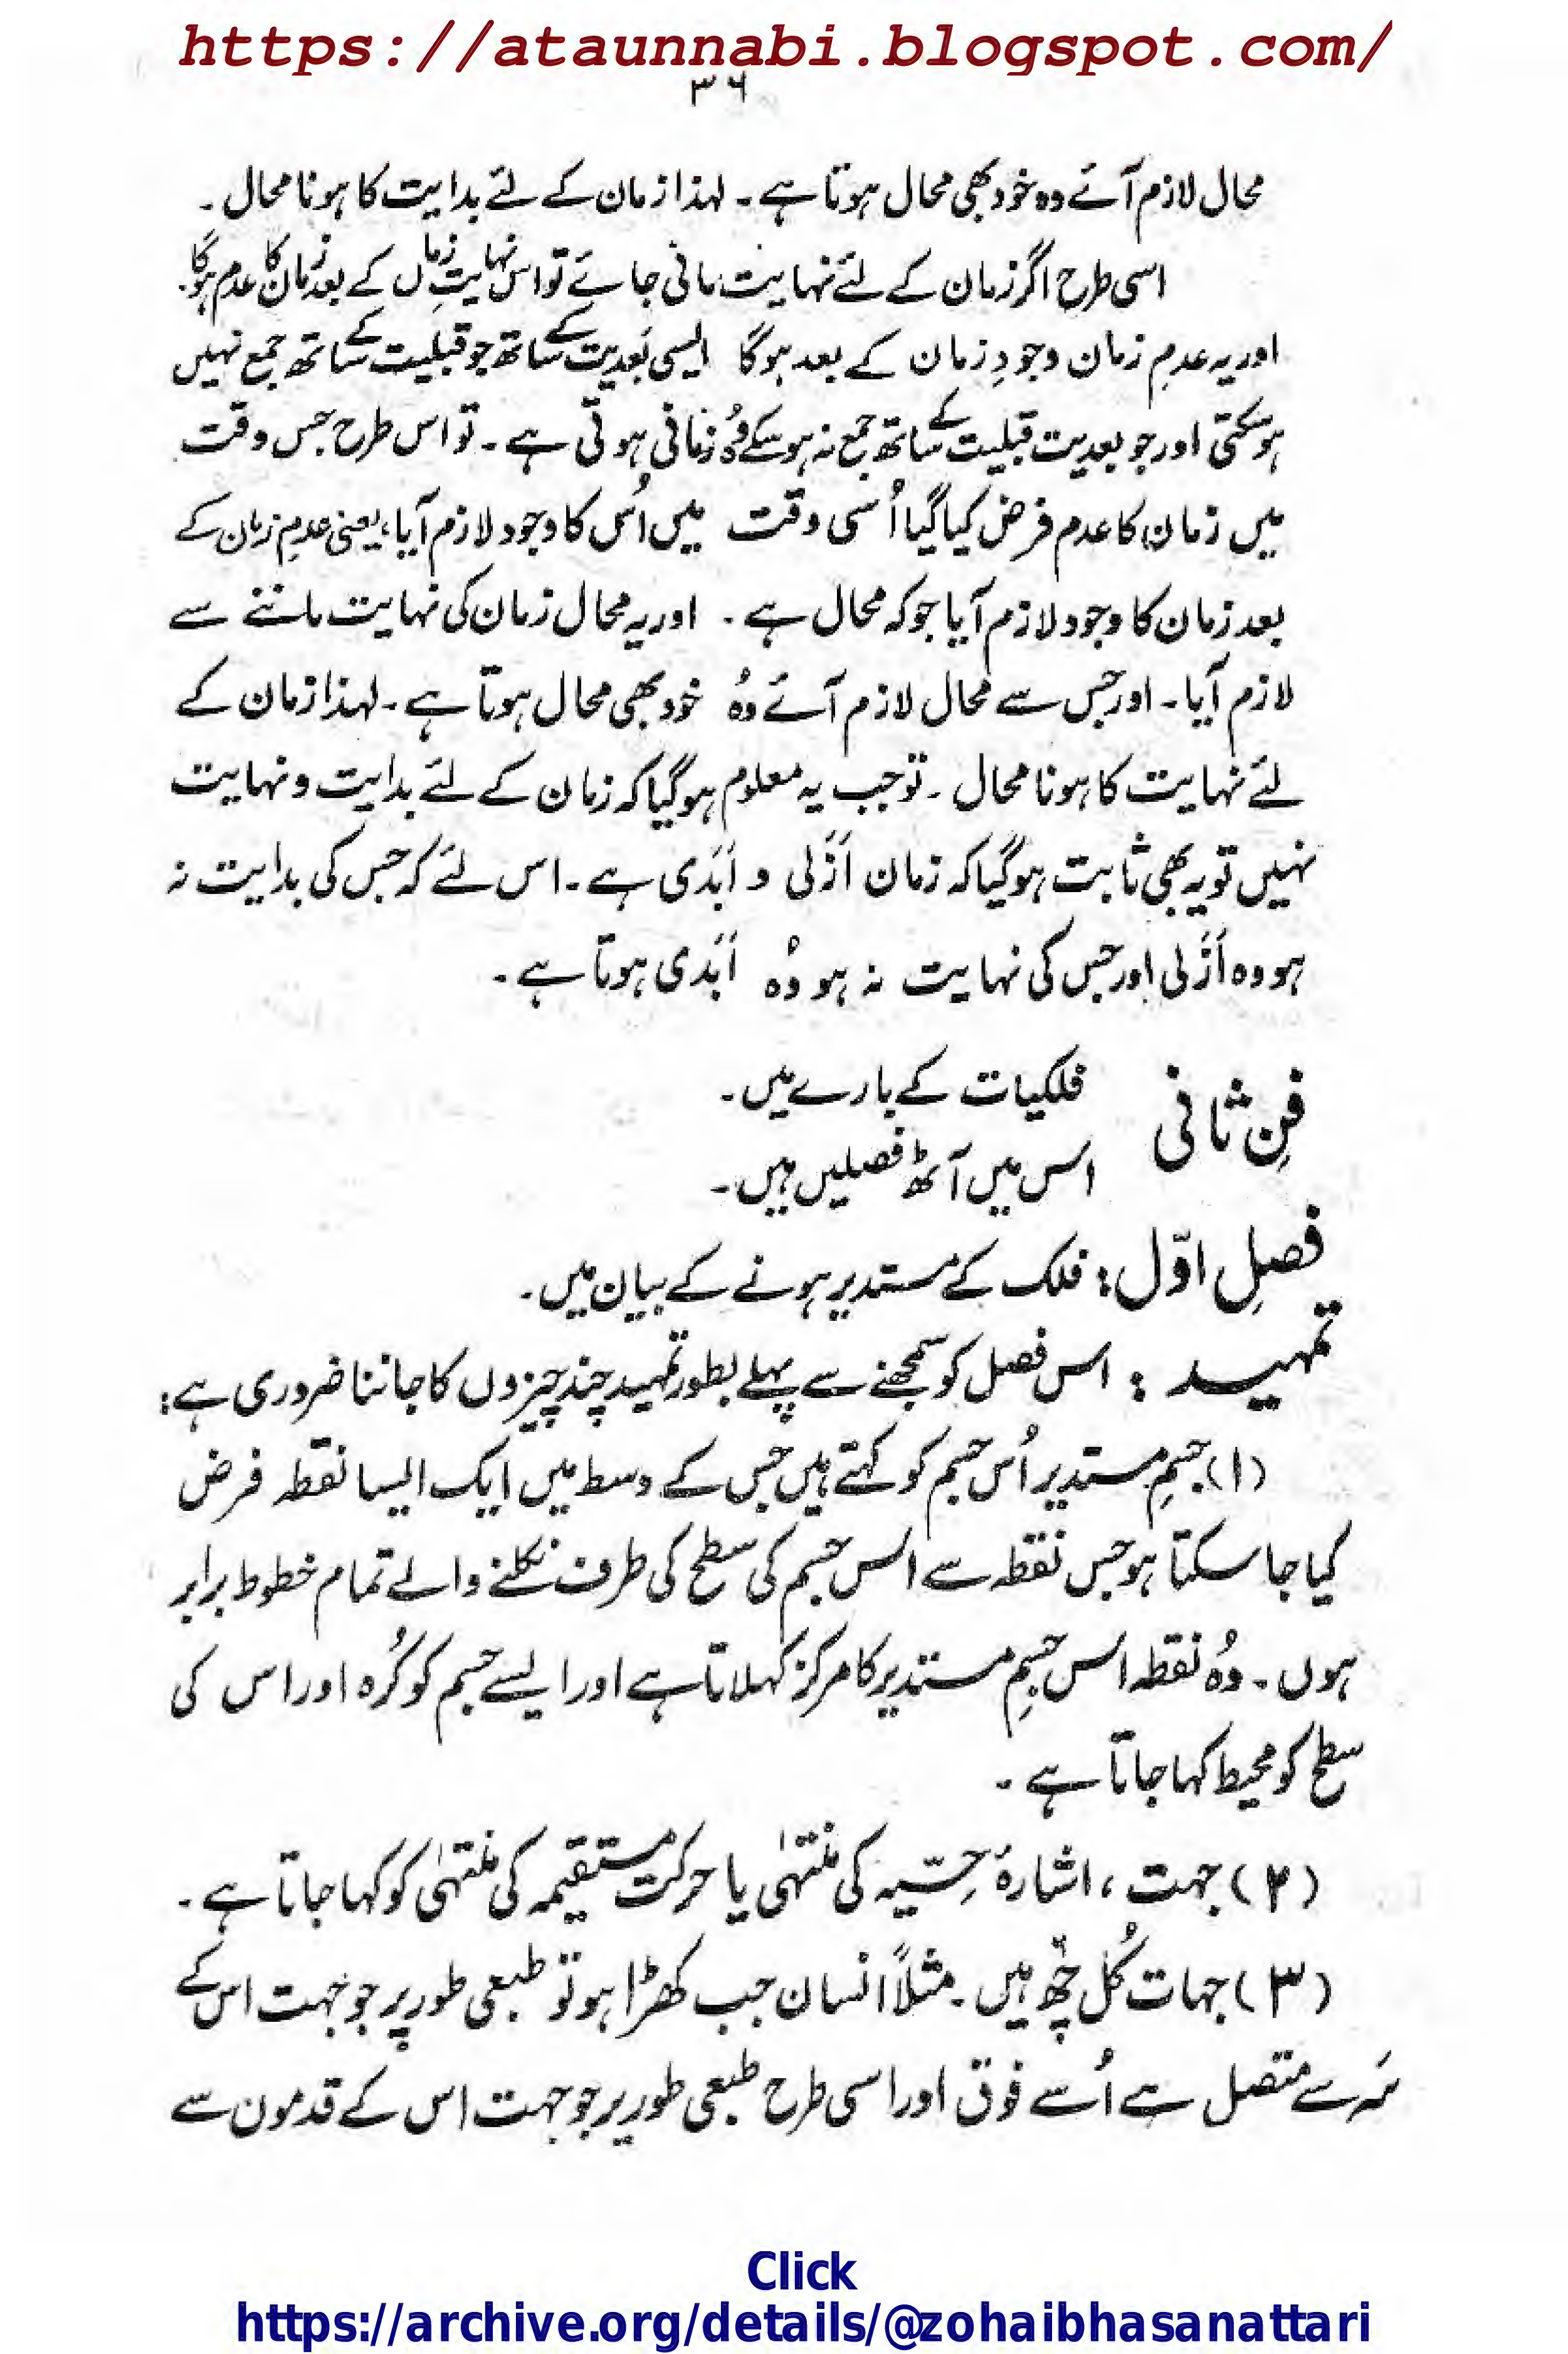 https://ataunnabi.blogspot.com/
۳۶
محال لازم آئے وہ خود بھی محال ہوتا ہے ۔ لہذا زمان کے لئے بدایت کا ہونا محال ۔
اسی طرح اگر زمان کے لئے نہایت مانی جائے تو اس نہایتِ زماں کے بعد زمان کا عدم ہوگا۔
اور یہ عدمِ زمان وجودِ زمان کے بعد ہوگا ایسی بَعدیت کے ساتھ جو قبلیت کے ساتھ جمع نہیں
ہوسکتی اور جو بعدیت قبلیت کے ساتھ جمع نہ ہوسکے وُہ زمانی ہوتی ہے ۔ تو اس طرح جس وقت
میں زمان کا عدم فرض کیا گیا اُسی وقت میں اُس کا وجود لازم آیا، یعنی عدمِ زمان کے
بعد زمان کا وجود لازم آیا جو کہ محال ہے ۔ اور یہ محال زمان کی نہایت ماننے سے
لازم آیا ۔ اور جس سے محال لازم آئے وُہ خود بھی محال ہوتا ہے ۔ لہذا زمان کے
لئے نہایت کا ہونا محال ۔ تو جب یہ معلوم ہوگیا کہ زمان کے لئے بدایت و نہایت
نہیں تو یہ بھی ثابت ہوگیا کہ زمان اَزَلی و اَبَدی ہے ۔ اس لئے کہ جس کی بدایت نہ
ہو وہ اَزَلی اور جس کی نہایت نہ ہو وُہ اَبَدی ہوتا ہے ۔
فنِ ثانی فلکیات کے بارے میں ۔
اس میں آٹھ فصلیں ہیں ۔
فصلِ اوّل : فلک کے مستدیر ہونے کے بیان میں ۔
تمہید : اس فصل کو سمجھنے سے پہلے بطور تمہید چند چیزوں کا جاننا ضروری ہے :
(۱) جسمِ مستدیر اُس جسم کو کہتے ہیں جس کے وسط میں ایک ایسا نقطہ فرض
کیا جا سکتا ہو جس نقطہ سے اس جسم کی سطح کی طرف نکلنے والے تمام خطوط برابر
ہوں ۔ وُہ نقطہ اس جسمِ مستدیر کا مرکز کہلاتا ہے اور ایسے جسم کو کُرہ اور اس کی
سطح کو محیط کہا جاتا ہے ۔
(۲) جہت ، اشارہٗ حِسّیہ کی منتہٰی یا حرکت مستقیمہ کی منتہٰی کو کہا جاتا ہے ۔
(۳) جہات کُل چھ ہیں ۔ مثلاً انسان جب کھڑا ہو تو طبعی طور پر جو جہت اس کے
سَر سے متصل ہے اُسے فوق اور اسی طرح طبعی طور پر جو جہت اس کے قدموں سے
Click
https://archive.org/details/@zohaibhasanattari